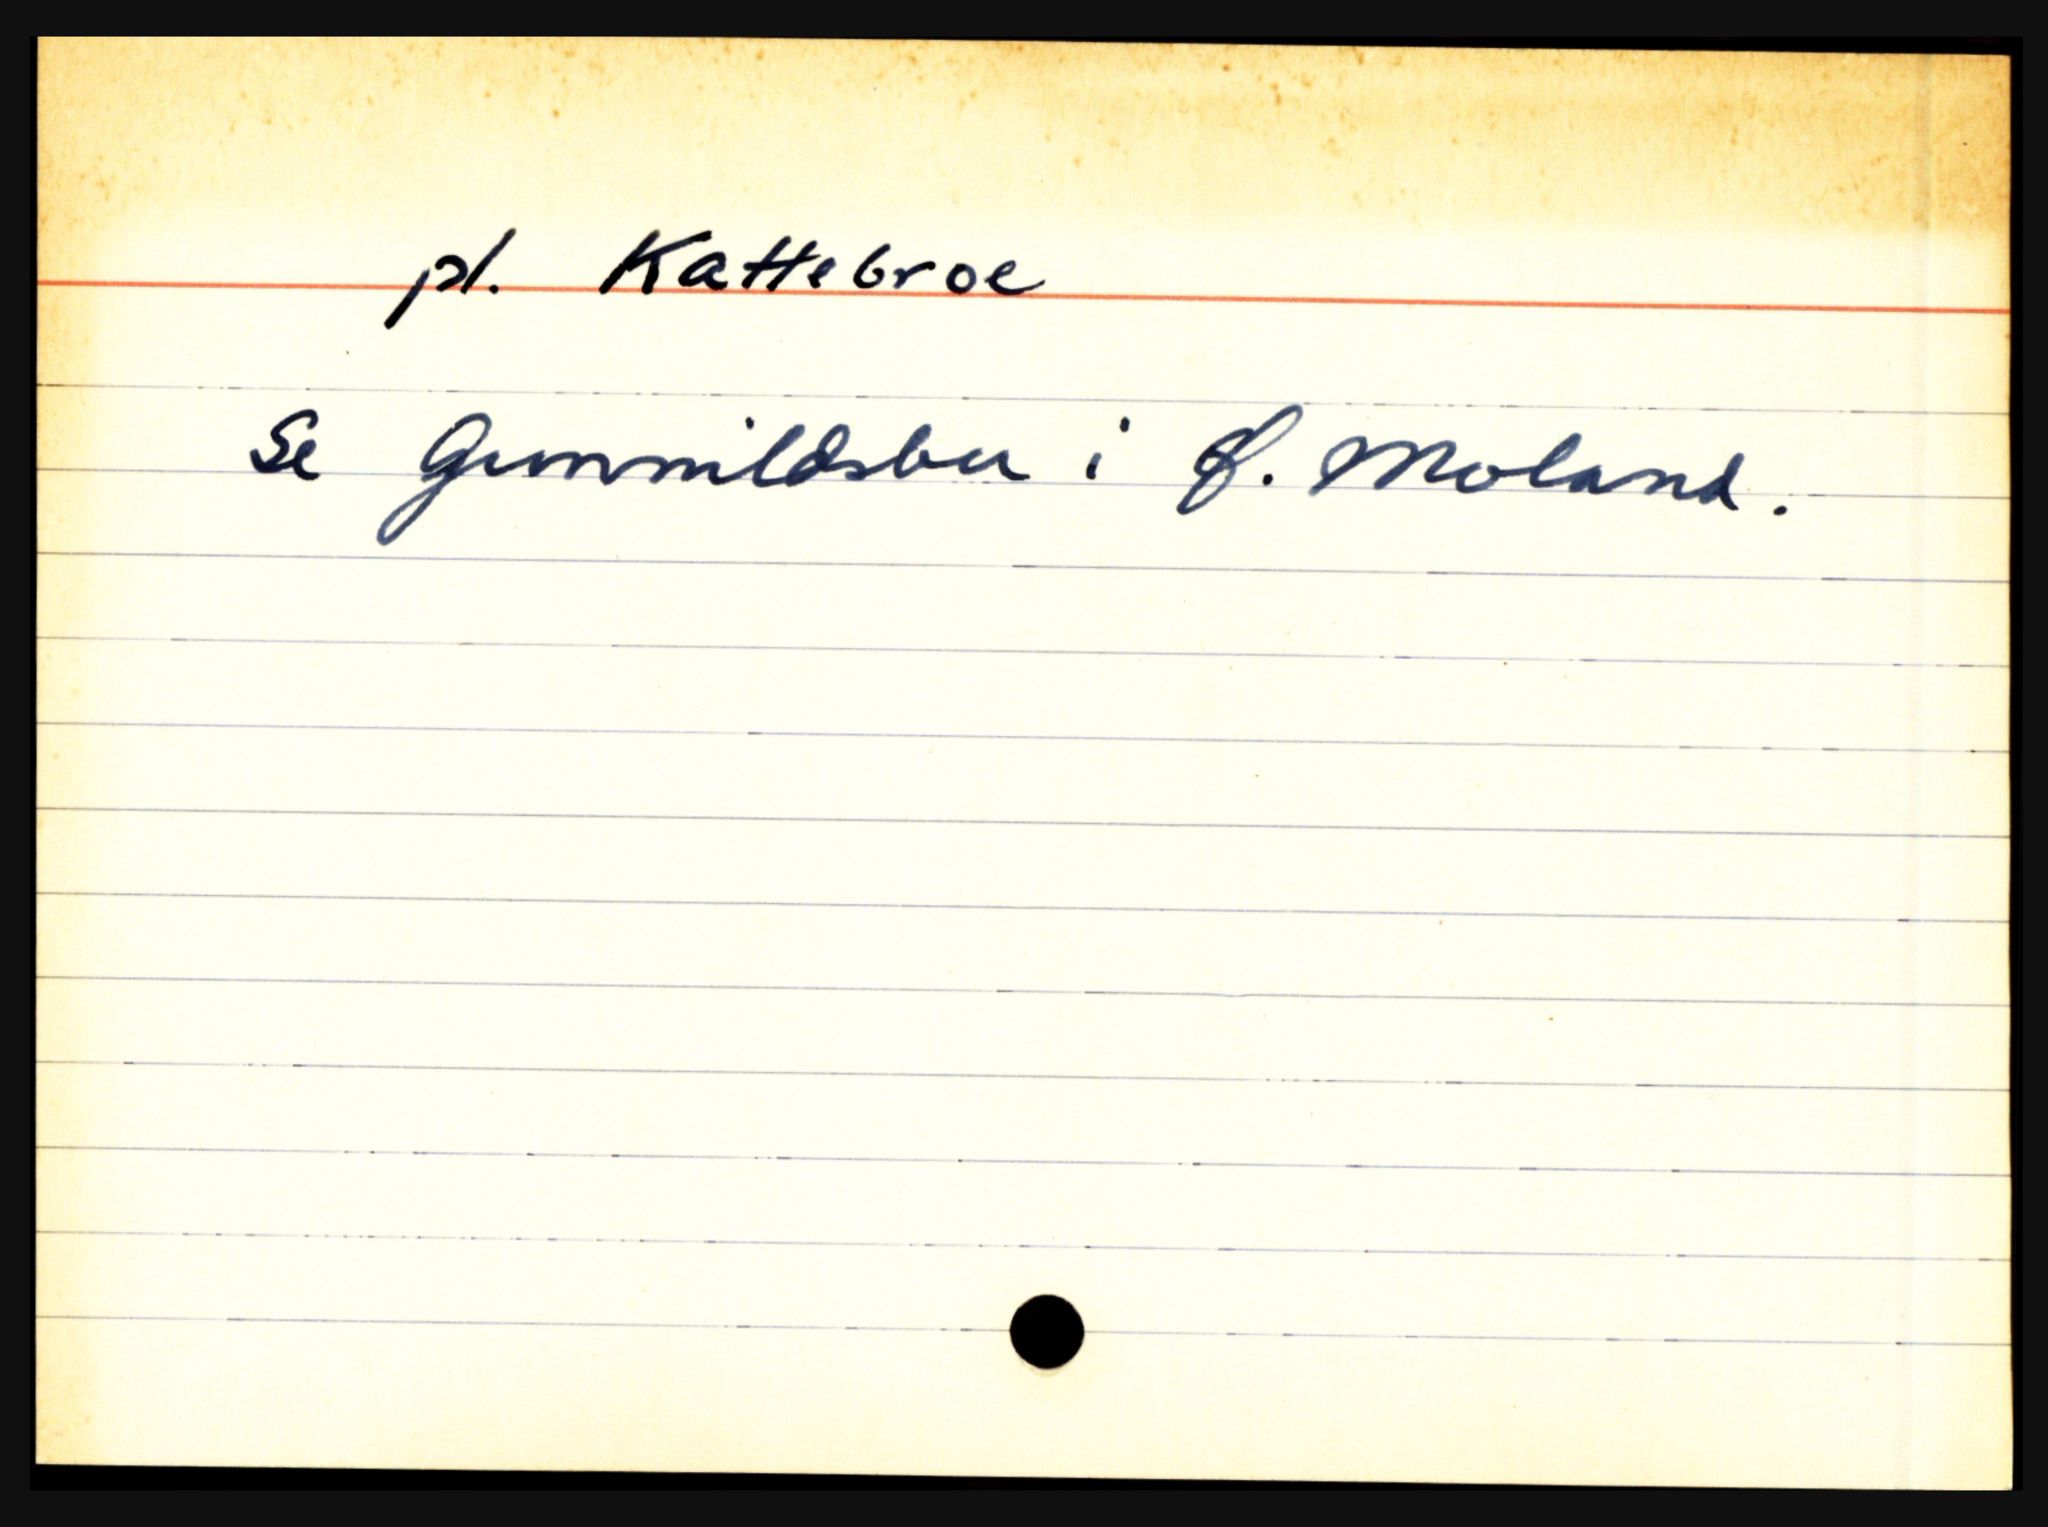 pl. Kattebroe
Se Gunnildsbu i Ø. Moland.